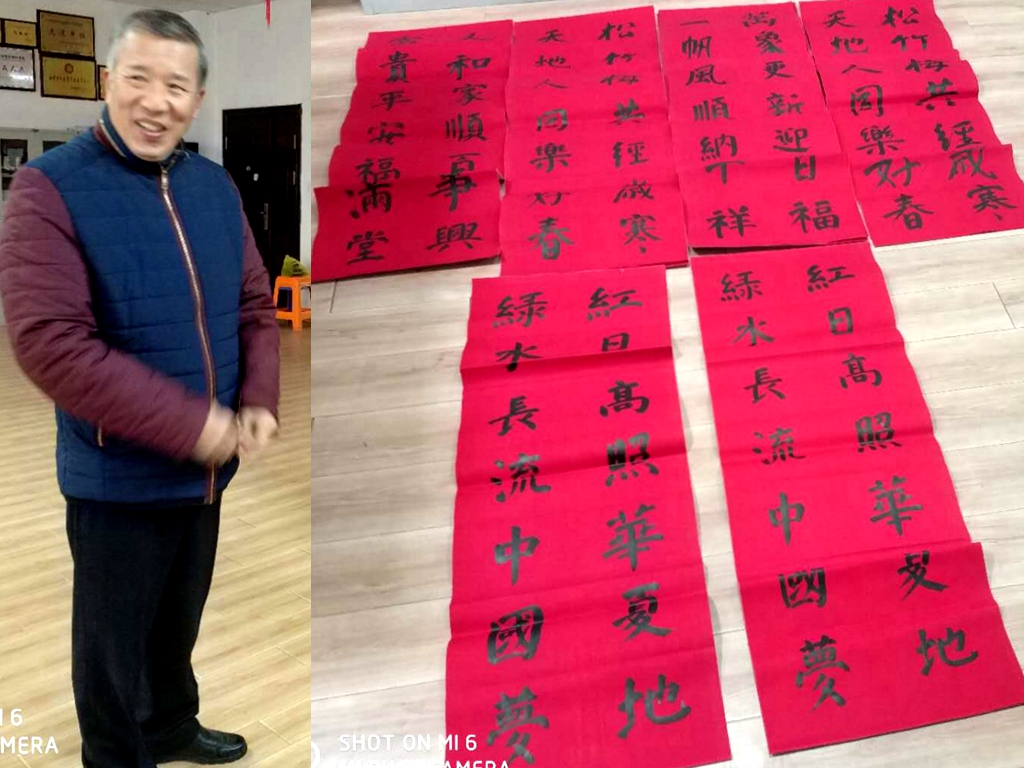 人和家順百事興
富貴平安福滿堂
松竹梅共經歲寒
天地人同樂好春
萬象更新迎百福
一帆風順納千祥
松竹梅共經歲寒
天地人同樂好春
紅日髙照華夏地
綠水長流中國夢
紅日髙照華夏地
綠水長流中國夢
I 6
MERA
SHOT ON MI 6
CAMERA